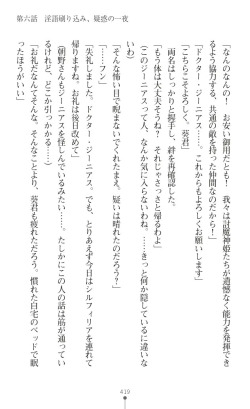 第六話　淫語刷り込み、疑惑の一夜
「なんのなんの！　お安い御用だとも！　我は討魔神姫たちが遺憾なく能力を発揮でき
るよう協力する、共通の敵を持った仲間なのだから！」
「ドクター・ジーニアス……。これからもよろしくお願いします」
「こちらこそよろしく、葵君」
　両名はしっかりと握手し、絆を再確認した。
「もう体は大丈夫そうね？　それじゃさっさと帰るわよ」
（このジーニアスって人、なんか気に入らないわね。……きっと何か隠しているに違いな
いわ）
「……フン」
「そんな怖い目で睨まないでくれたまえ。疑いは晴れたのだろう？」
「失礼しました、ドクター・ジーニアス。でも、とりあえず今日はシルフィリアを連れて
帰りますね。お礼は後日改めて」
（朝野さんもジーニアスを怪しんでいるみたい……。たしかにこの人の話は筋が通ってい
るけれど、どこか引っかかる……）
「お礼だなんてそんな。そんなことより、葵君も疲れただろう。慣れた自宅のベッドで眠
ったほうがいい」
419